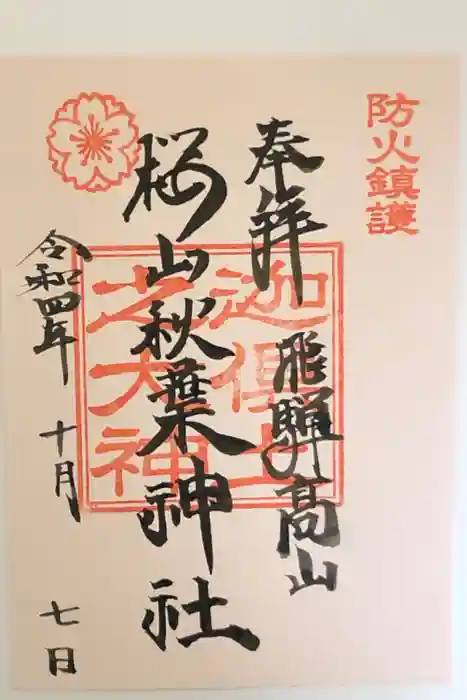 防火鎮護
奉拝
飛騨高山
桜山秋葉神社
迦倶土
之大神
令和四年
十月
七日